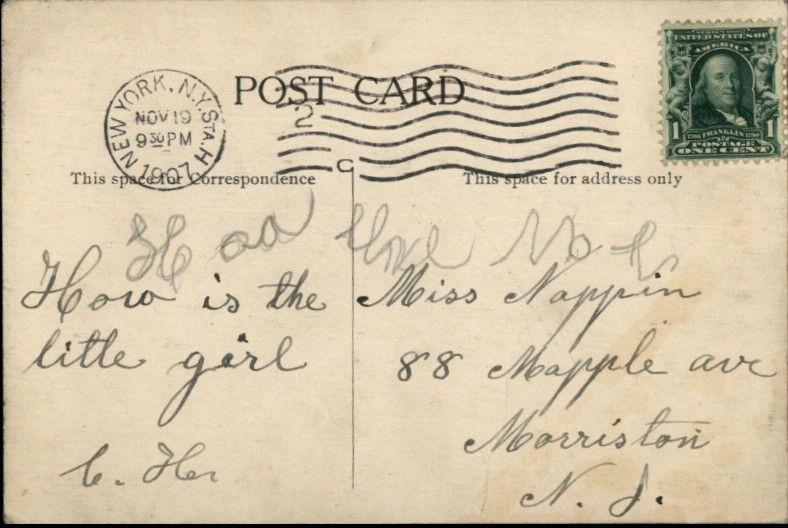 POST CARD
NEW YORK, N.Y. STA. H
NOV 19
9 30 PM
1907
2
C
SERIES 1902
UNITED STATES OF
AMERICA
1 FRANKLIN 1
POSTAGE
ONE CENT
This space for Correspondence
This space for address only
How is the
little girl
Miss Nappin
88 Mapple ave
Morriston
N. J.